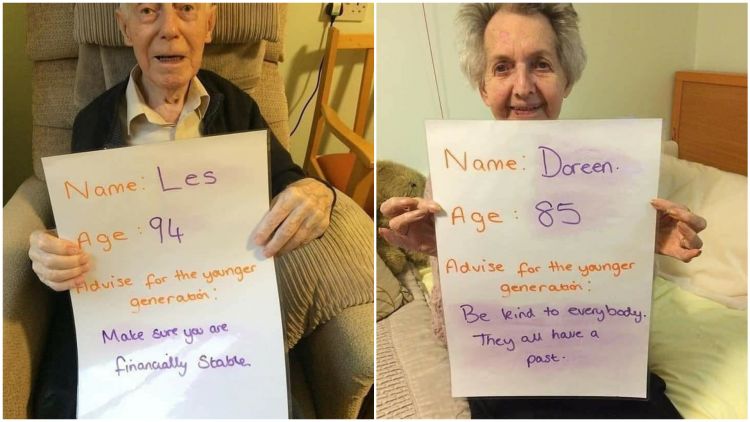 Name: Les
Age : 94
Advise for the younger
generation:
Make sure you are
financially Stable
Name: Doreen.
Age : 85
Advise for the younger
generation:
Be kind to everybody.
They all have a
past.